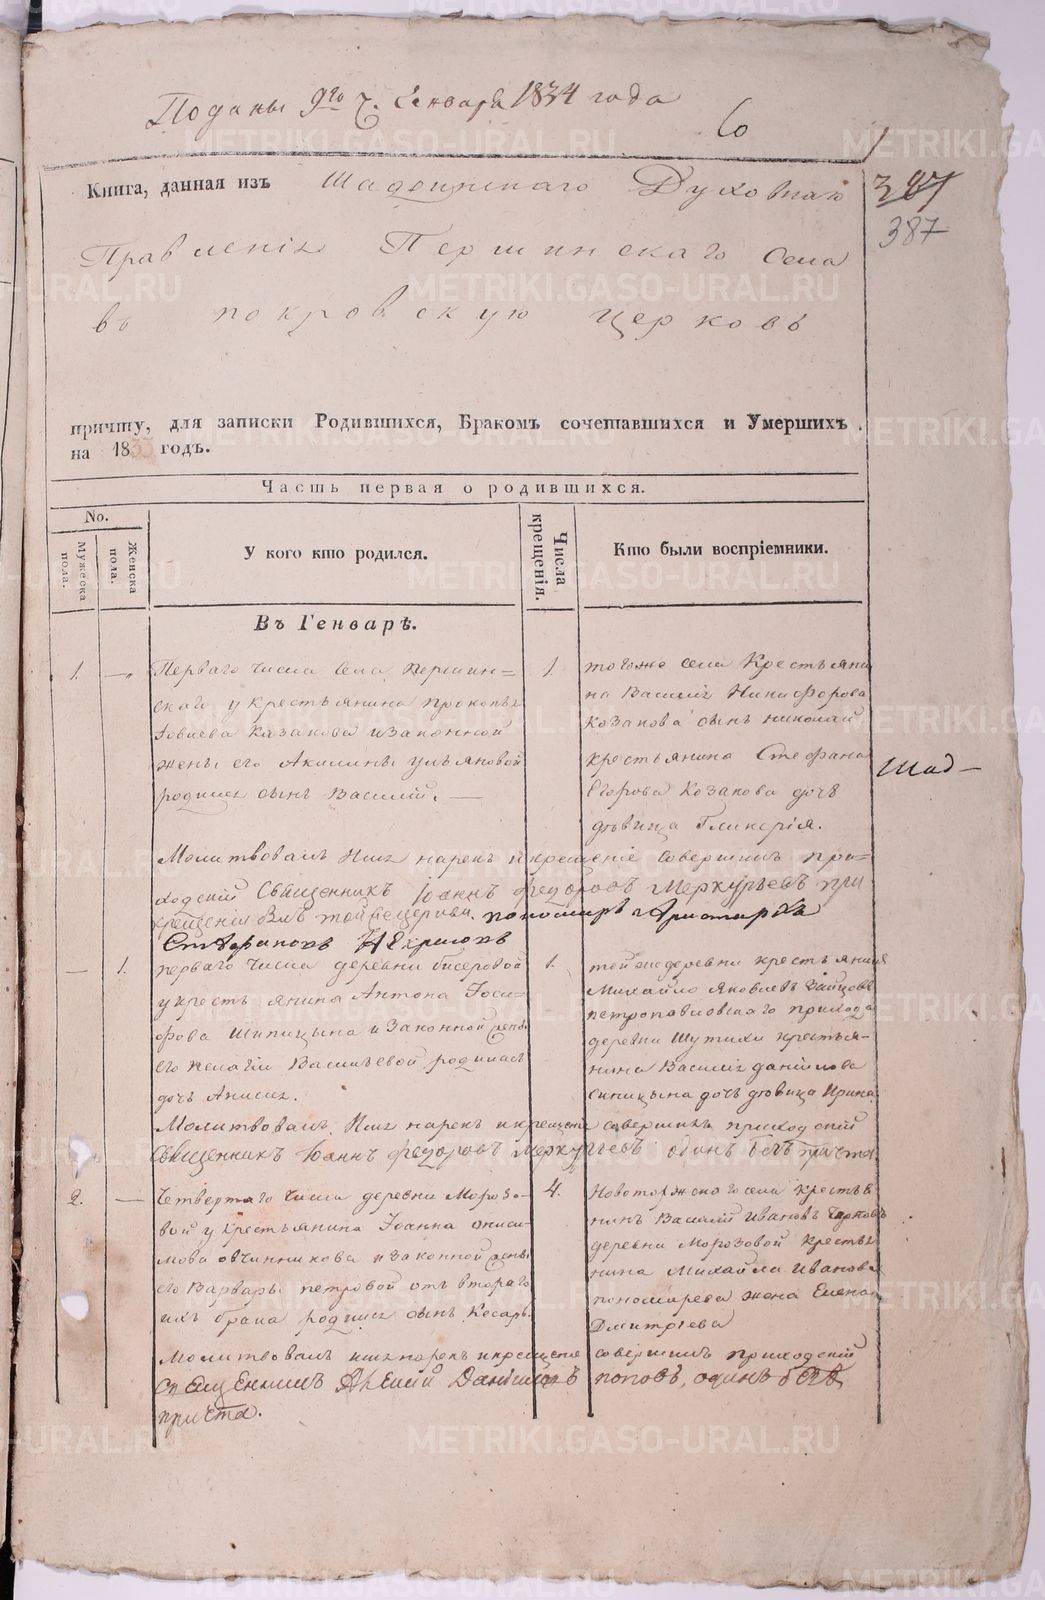 Поданы 9го ч. Генваря 1834 года
6
387
387
Книга, данная изъ Шадринскаго Духовнаго
Правленія Першинскаго села
въ покровскую церковь
причту, для записки Родившихся, Бракомъ сочетавшихся и Умершихъ
на 1833 годъ.
Часть первая о родившихся.
No.
Мужеска пола.
Женска пола.
У кого кто родился.
Числа крещенія.
Кто были воспріемники.
Въ Генварѣ.
1. —
Перваго числа села першин=
скаго у крестьянина прокопья
Казакова и законной
жены его Акилины ульяновой
родился сынъ Василій. —
1.
тогоже села Крестьяни
на Василія Никифорова
Козакова сынъ николай
крестьянина Стефана
Егорова Козакова дочь
дѣвица Гликерія.
Шад —
Молитвовалъ Имя нарекъ и крещеніе совершилъ при=
ходскій Священникъ Іоаннъ Федоровъ Меркурьевъ при
крещеніи былъ тойже церкви пономарь Аристархъ
Стефановъ
— 1.
перваго числа деревни бисеровой
у крестьянина Антона Іоси=
фова Шипицына и законной жены
его пелагіи Васильевой родилась
дочь Анисья.
1.
тойже деревни крестьянинъ
Михайло Яковлевъ
петропавловскаго прихода
деревни Шутихи крестья=
нина Василія данійлова
синицына дочь дѣвица Ирина
Молитвовалъ, Имя нарекъ и крещеніе совершилъ приходскій
Священникъ Іоаннъ федоровъ Меркурьевъ одинъ безъ причта
2. —
Четвертаго числа деревни Морозо=
вой у крестьянина Іоанна ониси=
мова овчинникова и законной жены
его Варвары петровой отъ втораго
ихъ брака родился сынъ Кесарь.
4.
Новоторжскаго села крестья
нинъ Василій Ивановъ
деревни Морозовой крестья
нина Михайла Иванова
пономарева жена Елена
Дмитріева
Молитвовалъ имя нарекъ и крещеніе совершилъ приходскій
священникъ Арсеній Даниловъ поповъ, одинъ безъ
причта.
METRIKI.GASO-URAL.RU